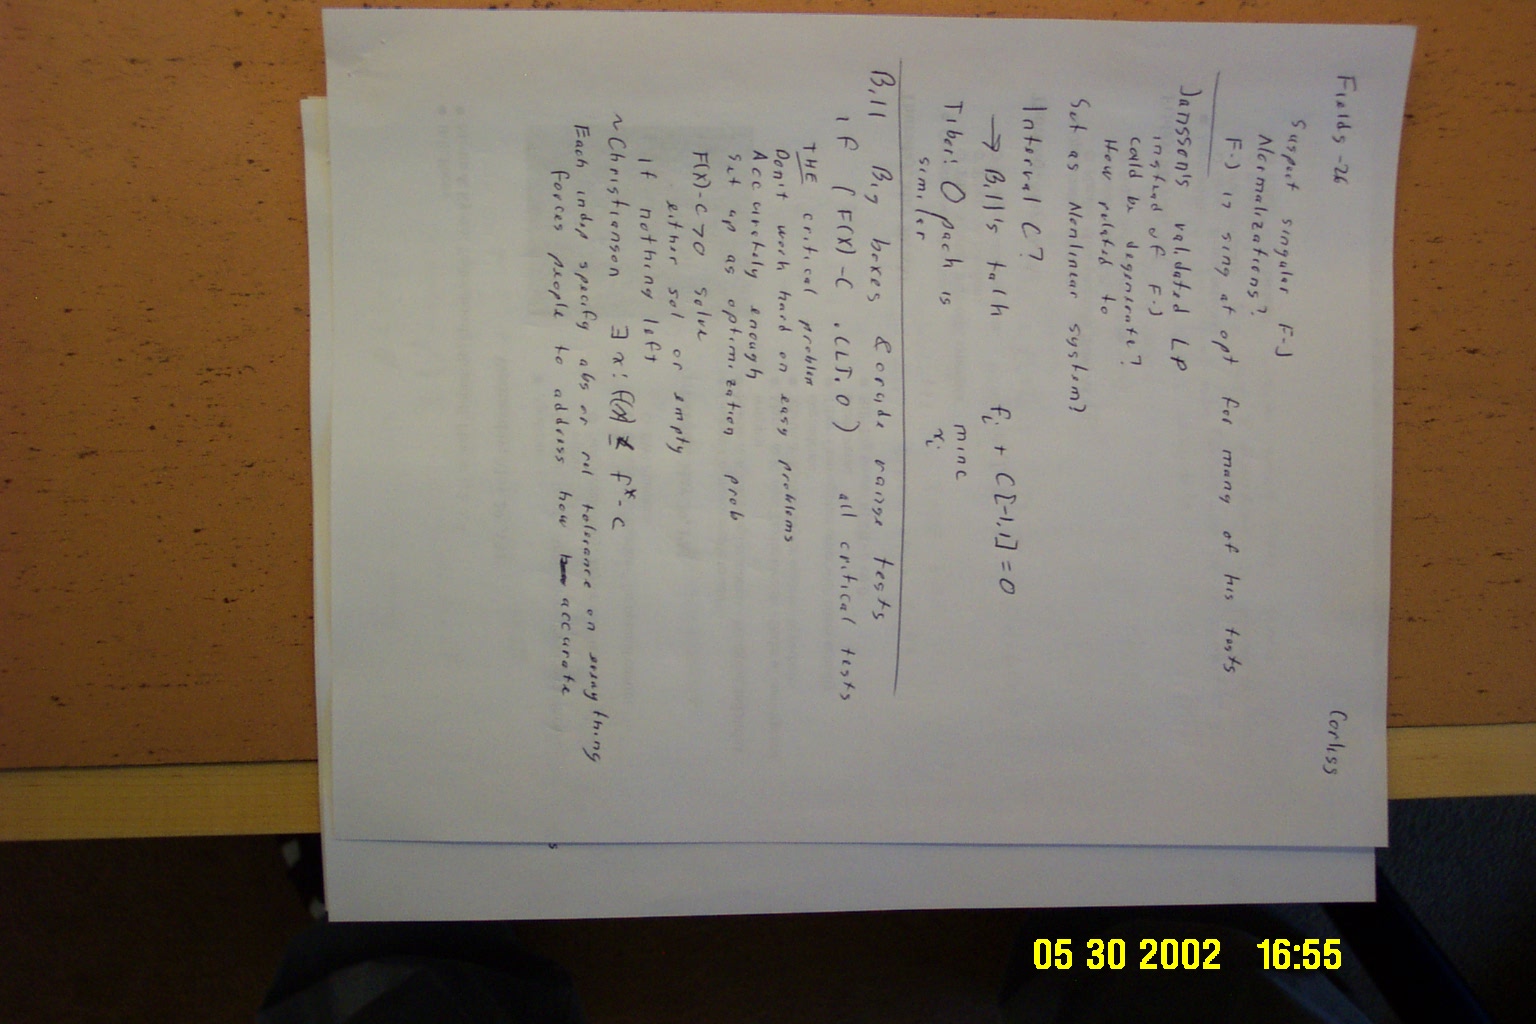 Fields -26
Corliss
Suspect singular F-J
Normalizations?
F-J is sing at opt for many of his tests
Jansson's validated LP
instead of F-J
could be degenerate?
How related to
Set as Nonlinear system?
Interval C?
→ Bill's talk fᵢ + C[-1,1] = 0
Tibor: Opach is min c
similar xᵢ
Bill Big boxes & crude range tests
if (F(X)-C .LT. 0) all critical tests
THE critical problem
Don't work hard on easy problems
Accurately enough
Set up as optimization prob
F(X)-C>0 solve
either sol or empty
if nothing left
~Christianson ∃ x: f(x) ≤ f*-c
Each indep specify abs or rel tolerance on everything
forces people to address how accurate
05 30 2002 16:55